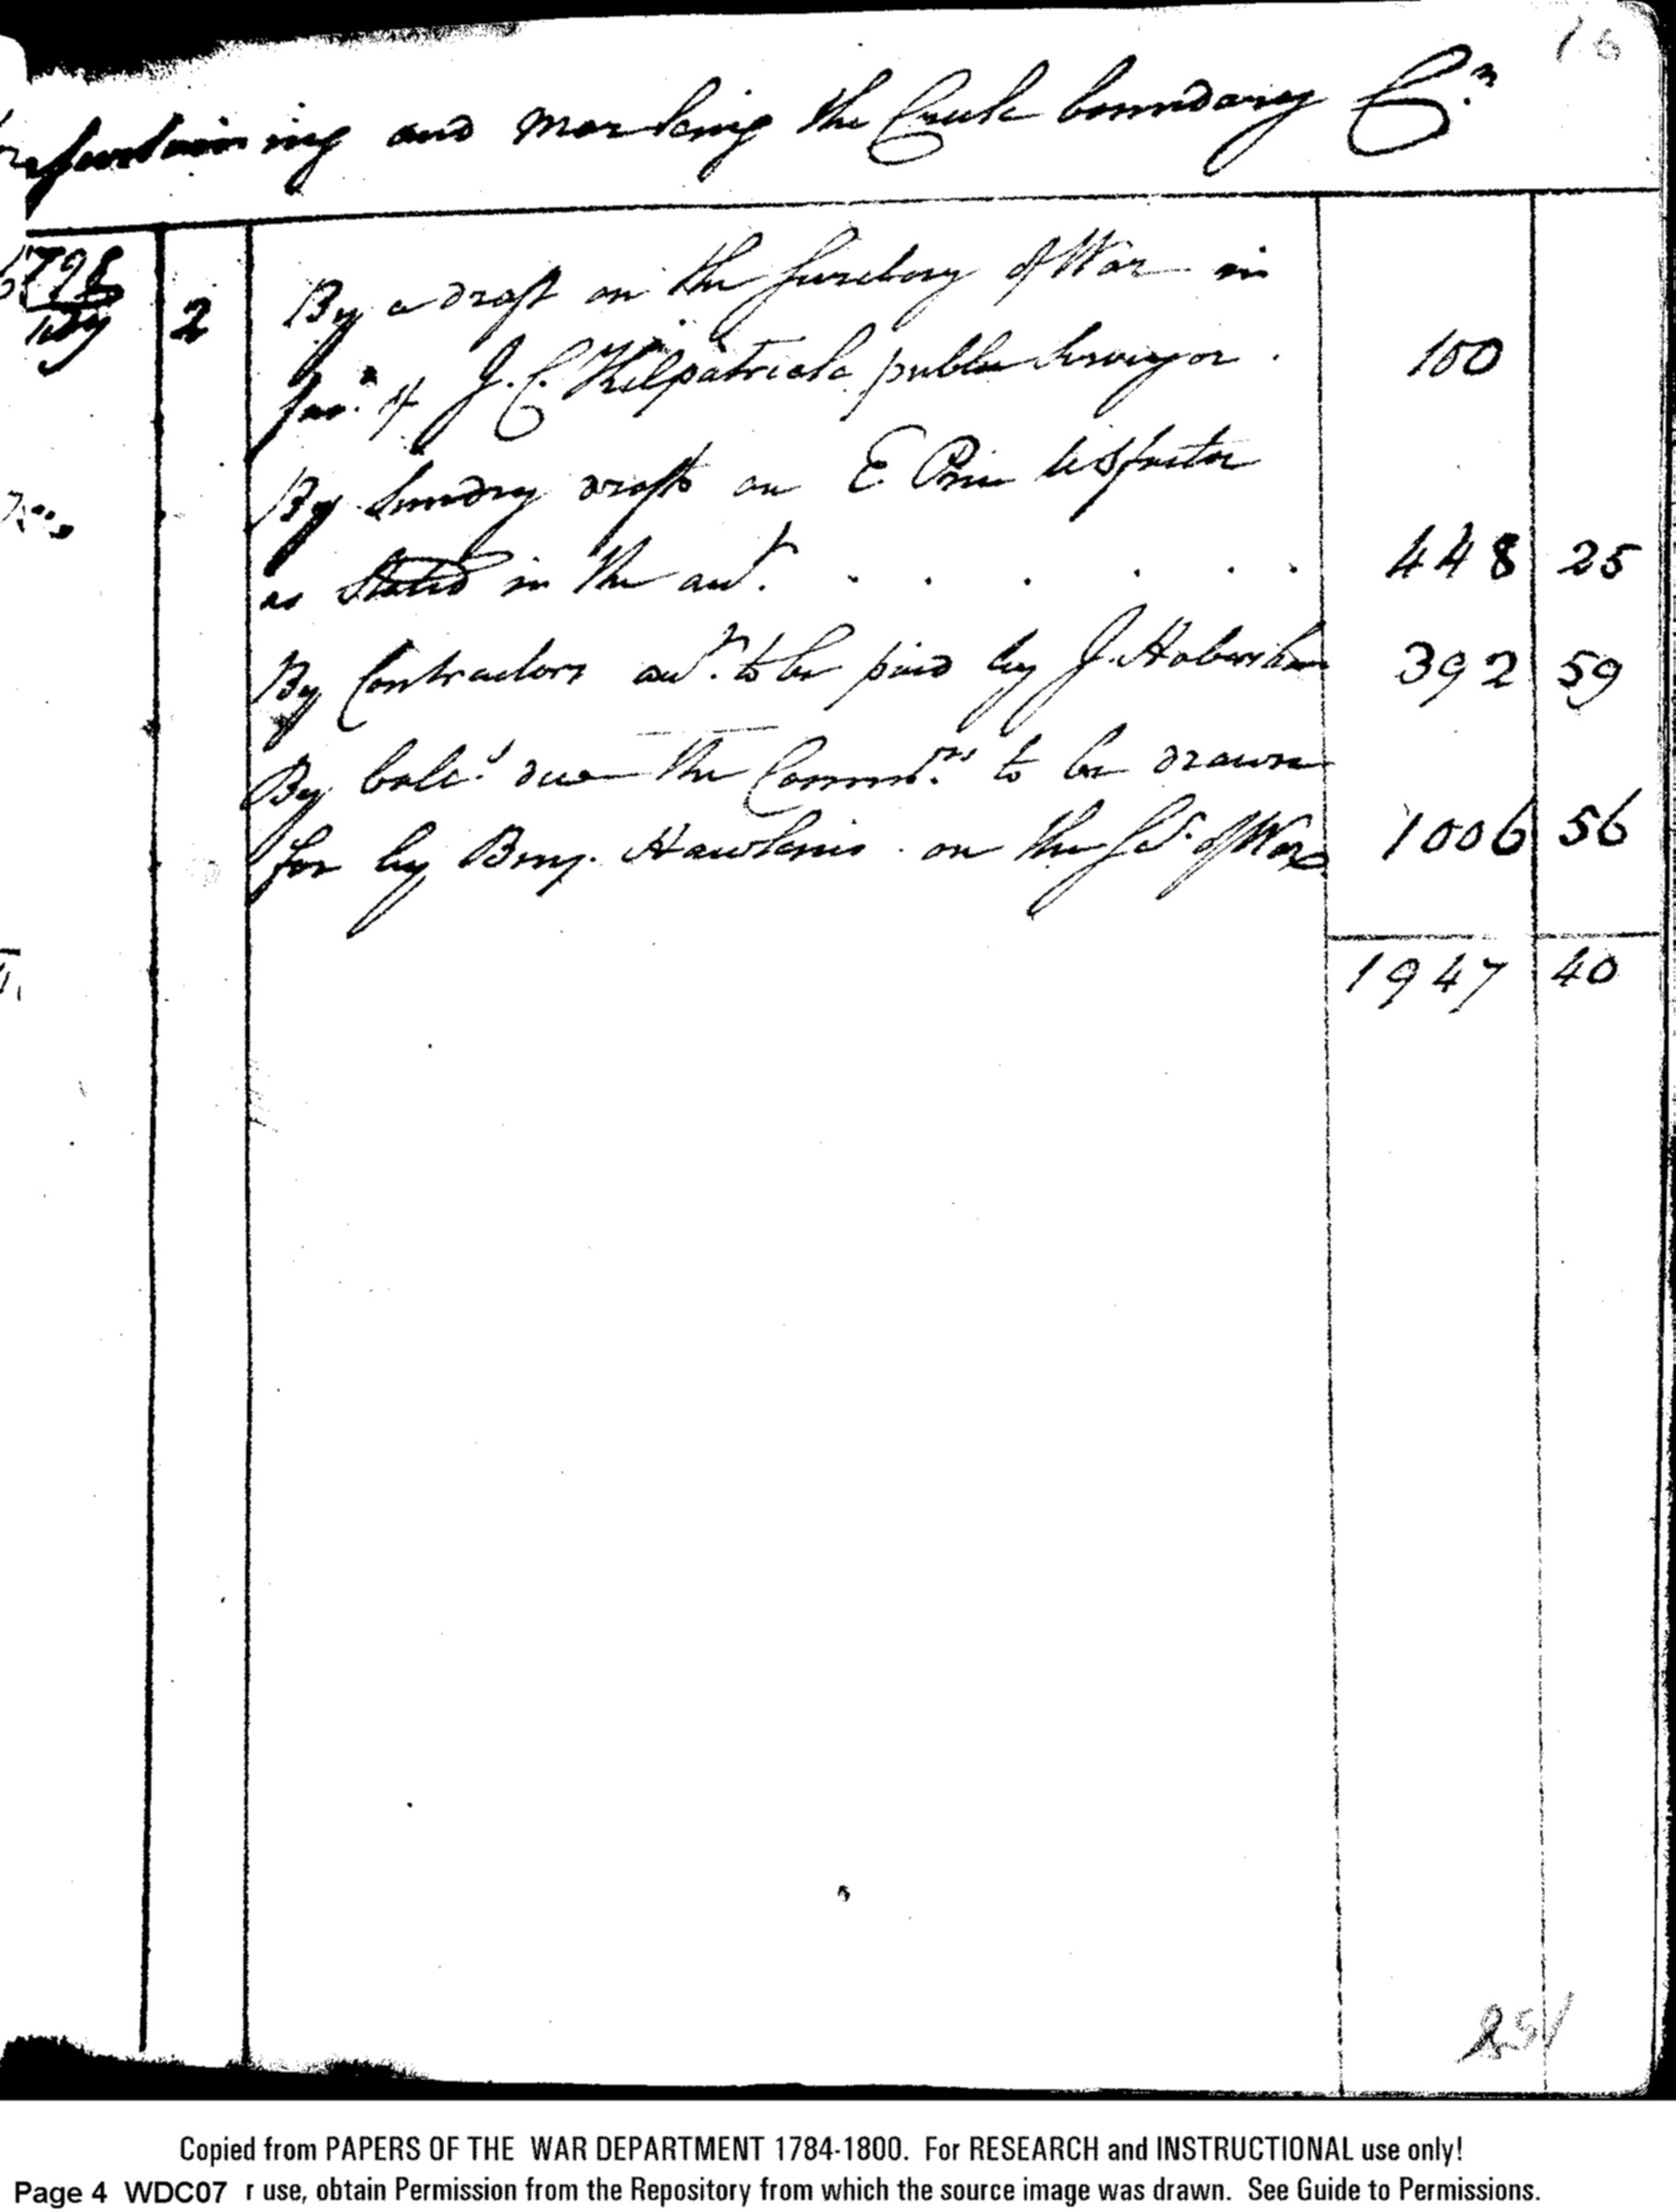 16
ascertaining and marking the Creek boundary Cr
1798
2 By a draft on the Secretary of War in
favr of J. C. Kilpatrick public surveyor . 100
By sundry drafts on E. Price as factor
as stated in the acct. . . . . . . 448 25
By Contractors acct. to be paid by J. Habersham 392 59
By balce due the Commrs to be drawn
for by Benj. Hawkins on the Sey. of War 1006 56
1947 40
251
Copied from PAPERS OF THE WAR DEPARTMENT 1784-1800. For RESEARCH and INSTRUCTIONAL use only!
Page 4 WDC07 r use, obtain Permission from the Repository from which the source image was drawn. See Guide to Permissions.